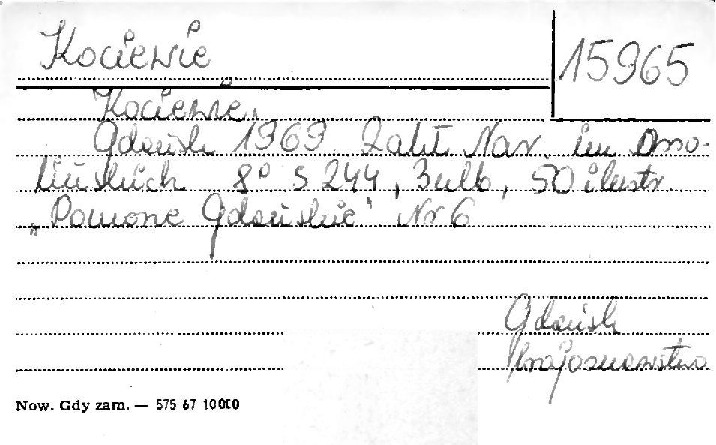 Kociewie
15965
Kociewie.
Gdańsk 1969 Zakł Nar. im Osso-
lińskich 8° s 244, 3 nlb, 50 ilustr.
„Pomorze Gdańskie" Nr 6
Gdańsk
krajoznawstwo
Now. Gdy zam. — 575 67 10000